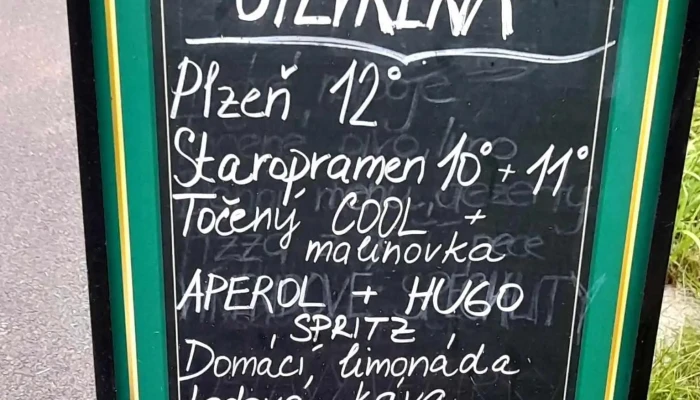 OTEVŘENA
Plzeň 12°
Staropramen 10° + 11°
Točený COOL +
malinovka
APEROL + HUGO
SPRITZ
Domácí limonáda
Ledová káva